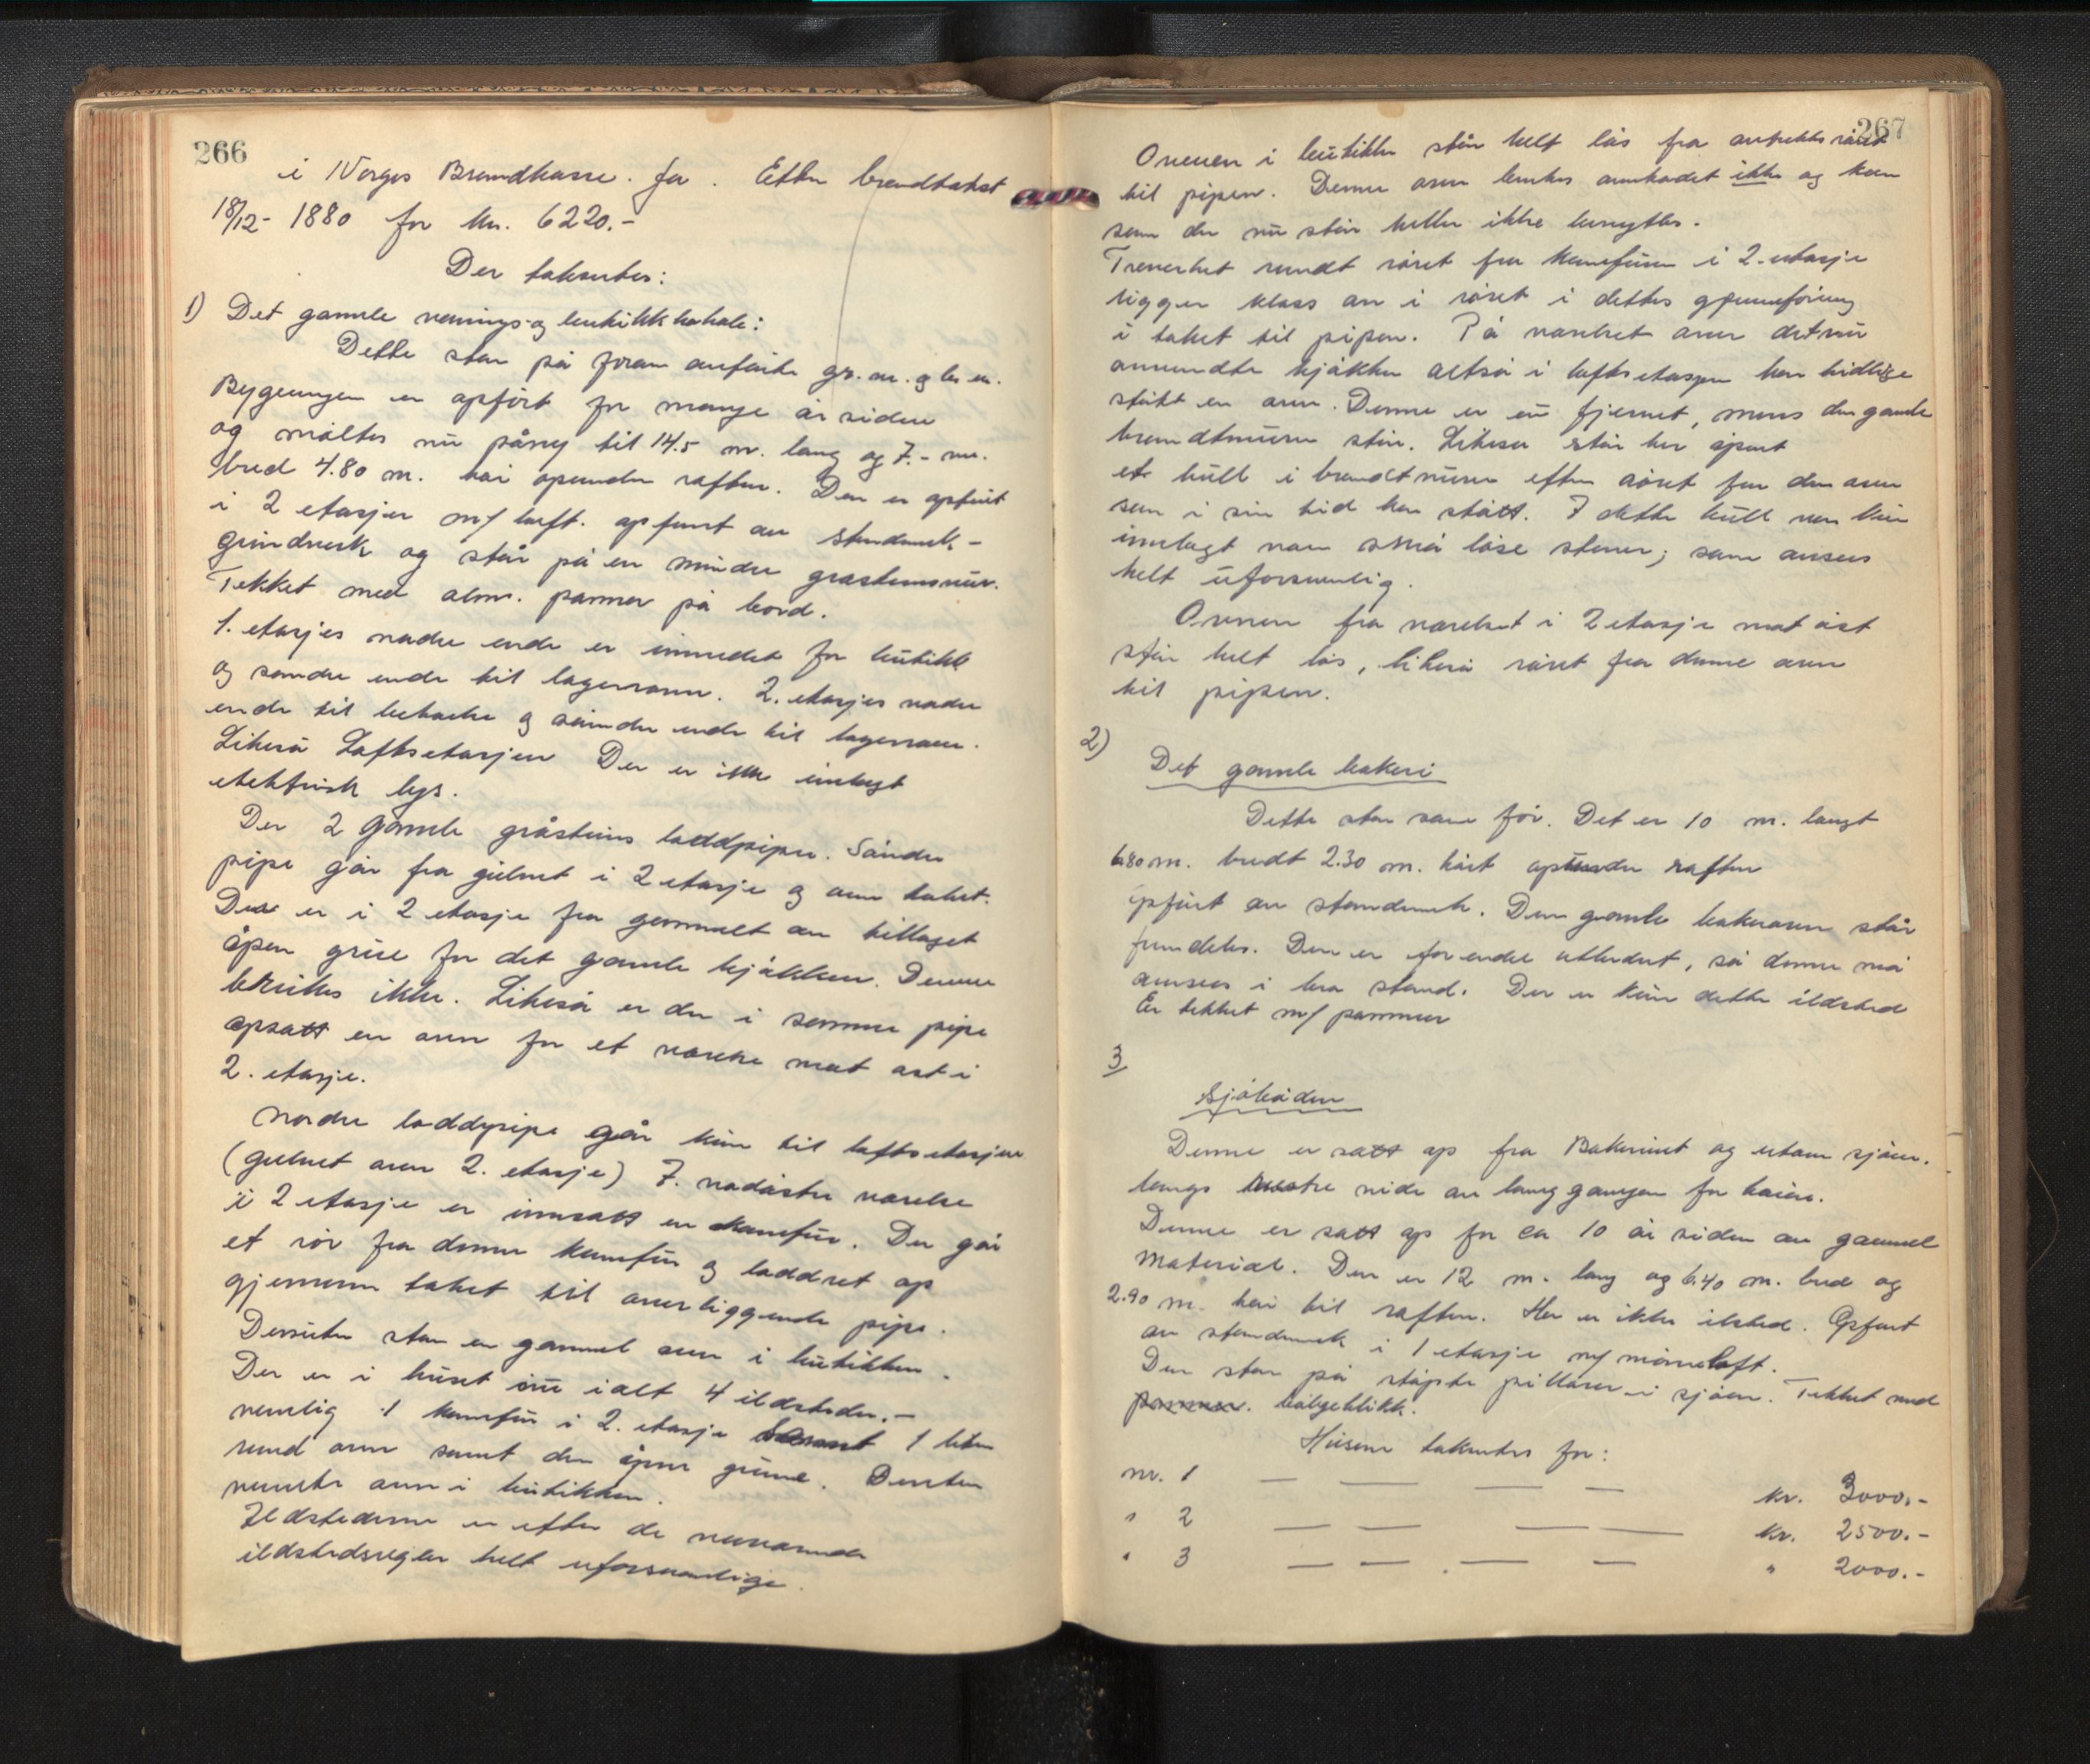 266
i Norges Brandkasse. Ja. Efter brandtakst
18/12- 1880 for kr. 6220.-
Der takseertes:
1) Det gamle vånings- og butikklokale:
Dette står på foran anførte gr. nr. og br. nr.
Bygningen er opført for mange år siden
og måltes nu påny til 14.5 m. lang og 7.- m.
bred 4.80 m. høi opunder raften. Den er opført
i 2 etasjer m/ loft. opført av stendverk-
grindverk og står på en mindre gråstensmur.
Tekket med alm. panner på bord.
1. etasjes nordre ende er innredet for butikk
og søndre ende til lagerrom. 2. etasjes nordre
ende til beboelse og søndre ende til lagerrom.
Likeså Loftsetasjen Der er ikke innlagt
elektrisk lys.
Der 2 gamle gråsteins loddpiper. Søndre
pipe går fra gulvet i 2 etasje og over taket.
Der er i 2 etasje fra gammelt av tillaget
åpen grue for det gamle kjøkken. Denne
brukes ikke. Likeså er der i samme pipe
opsatt en ovn for et værelse mot øst i
2. etasje.
Nordre loddpipe går kun til loftsetasjen
(gulvet over 2. etasje) I. nordøstre værelse
i 2 etasje er innsatt en komfur. Der går
et rør fra denne komfur og loddret op
gjennem taket til overliggende pipe.
Dessuten står en gammel ovn i butikken.
Der er i huset nu ialt 4 ildsteder.-
nemlig 1 komfur i 2. etasje samt 1 liten
rund ovn samt den åpne grue. Dessuten
nevnte ovn i butikken.
Ildstedene er efter de nuværende
ildstedsregler helt uforsvarlige.
267
Ovnen i butikken står helt løs fra avtrekksrøret
til pipen. Denne ovn brukes overhodet ikke og kan
som den nu står heller ikke benyttes.
Treverket rundt røret fra komfuren i 2. etasje
ligger kloss an i røret i dettes gjennemføring
i taket til pipen. På værelset over det nu
anvendte kjøkken altså i loftsetasjen har tidligere
stått en ovn. Denne er nu fjernet, mens den gamle
brandtmuren står. Likeså står her åpent
et hull i brandtmuren efter røret fra den ovn
som i sin tid har stått. I dette hull var kun
innlagt noen små løse stener; som ansees
helt uforsvarlig.
Ovnen fra værelset i 2 etasje mot øst
står helt løs, likeså røret fra denne ovn
til pipen.
2)
Det gamle bakeri
Dette står som før. Det er 10 m. langt
6.80 m. bredt 2.30 m. høit opunder raften
opført av stendverk. Den gamle bakerovn står
fremdeles. Den er for endel utbedret, så denne må
ansees i bra stand. Der er kun dette ildsted
Er tekket m/ panner
3
Sjøboden
Denne er satt op fra Bakeriet og utover sjøen.
langs vestre side av langgangen for kaien.
Denne er satt op for ca 10 år siden av gammel
material. Den er 12 m. lang og 6.40 m. bred og
2.90 m. høi til raften. Her er ikke ilsted. Opført
av stendverk i 1 etasje m/ mørneloft.
Den står på støpte pillarer i sjøen. Tekket med
panner. bølgeblikk.
Husene takseertes for:
nr. 1 — — — — kr. 3000.-
" 2 — — — — kr. 2500.-
" 3 — — — — " 2000.-